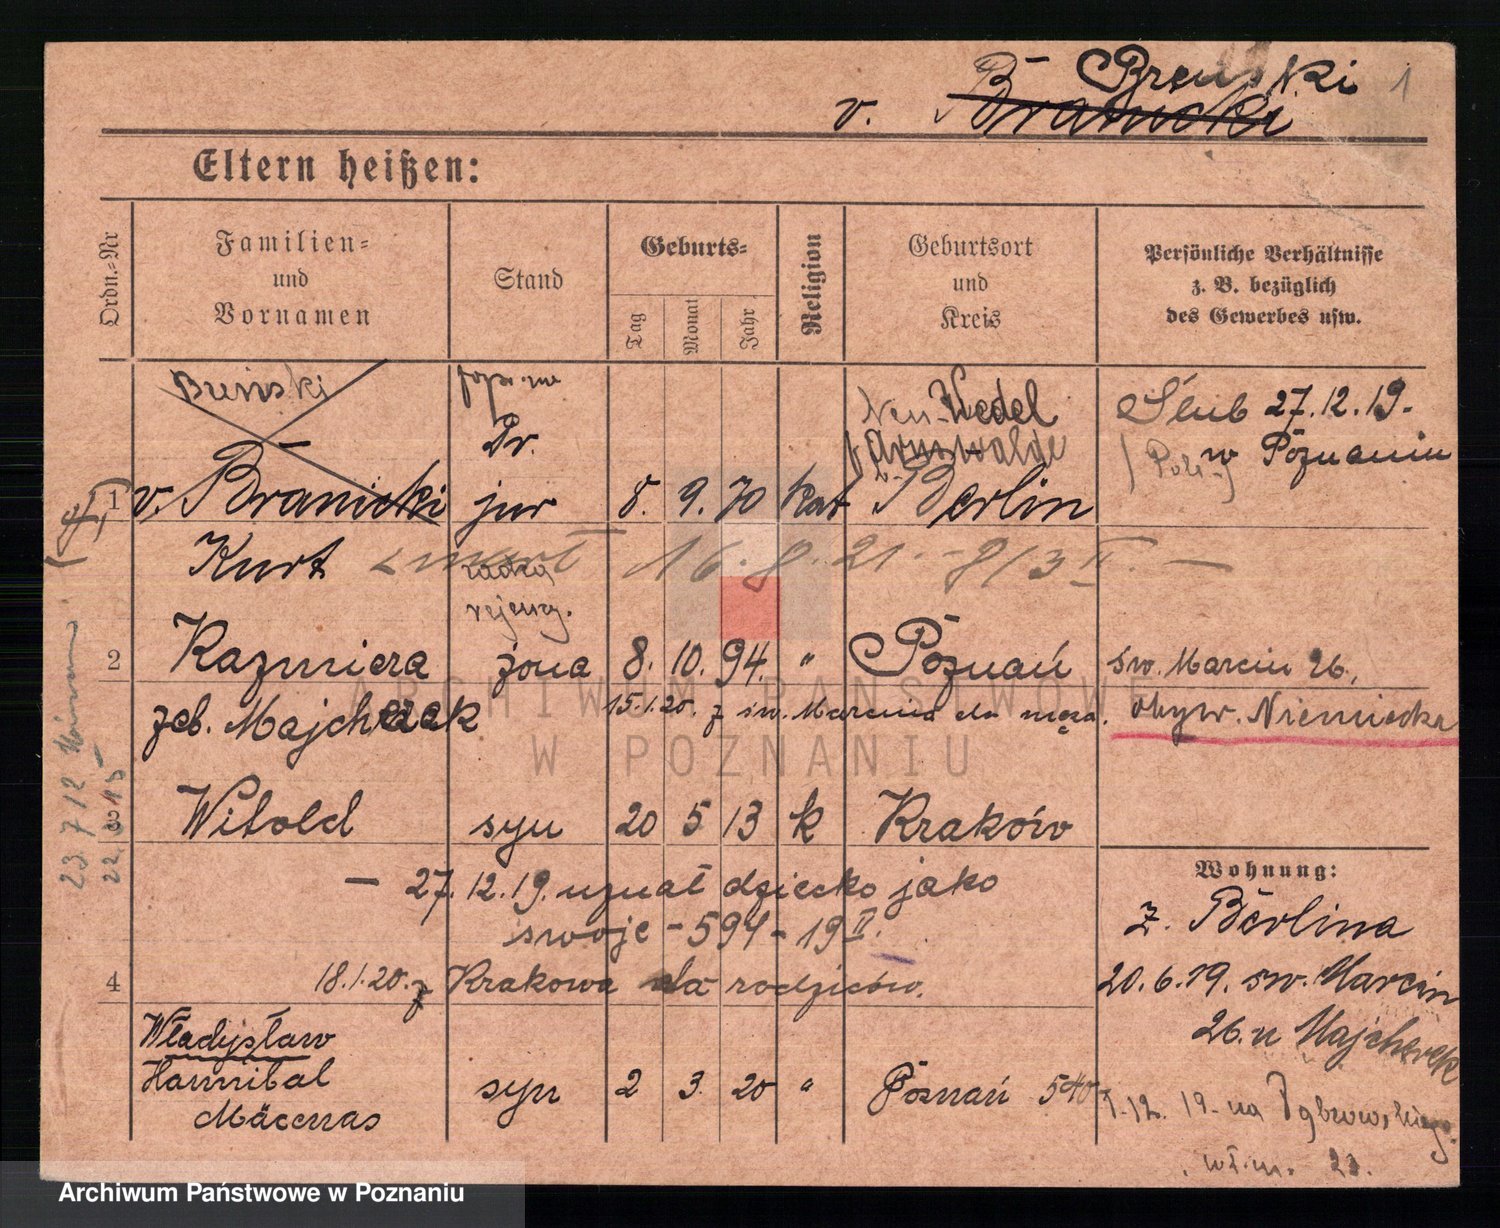 Breński 1
v. Branicki
Eltern heißen:
Ordn.-Nr
Familien-
und
Vornamen
Stand
Geburts-
Tag
Monat
Jahr
Religion
Geburtsort
und
Kreis
Persönliche Verhältnisse
z. B. bezüglich
des Gewerbes usw.
Dr.
Neu-Wedel
Arnswalde
Ślub 27.12.19.
w Poznaniu
1 v. Branicki jur 8. 9. 70 kat Berlin
Kurt 16. 8. 21. - 813 II. -
radca
rejency.
2 Kazmiera żona 8. 10. 94. " Poznań św. Marcin 26.
zeb. Majcherek 15.1.20. z św. Marcina do męża. obyw. Niemiecka
3 Witold syn 20 5 13 k Kraków
- 27.12.19. uznał dziecko jako
swoje - 594 - 19 II.
4 18.1.20. z Krakowa do rodziców.
Władysław
Hannibal
Mäcenas syn 2 3. 20 " Poznań 540
Wohnung:
z. Berlina
20.6.19. św. Marcin
26. u Majcherek
12. 19. na Dąbrowskiego
23.
23 7 12
ARCHIWUM PAŃSTWOWE
W POZNANIU
Archiwum Państwowe w Poznaniu